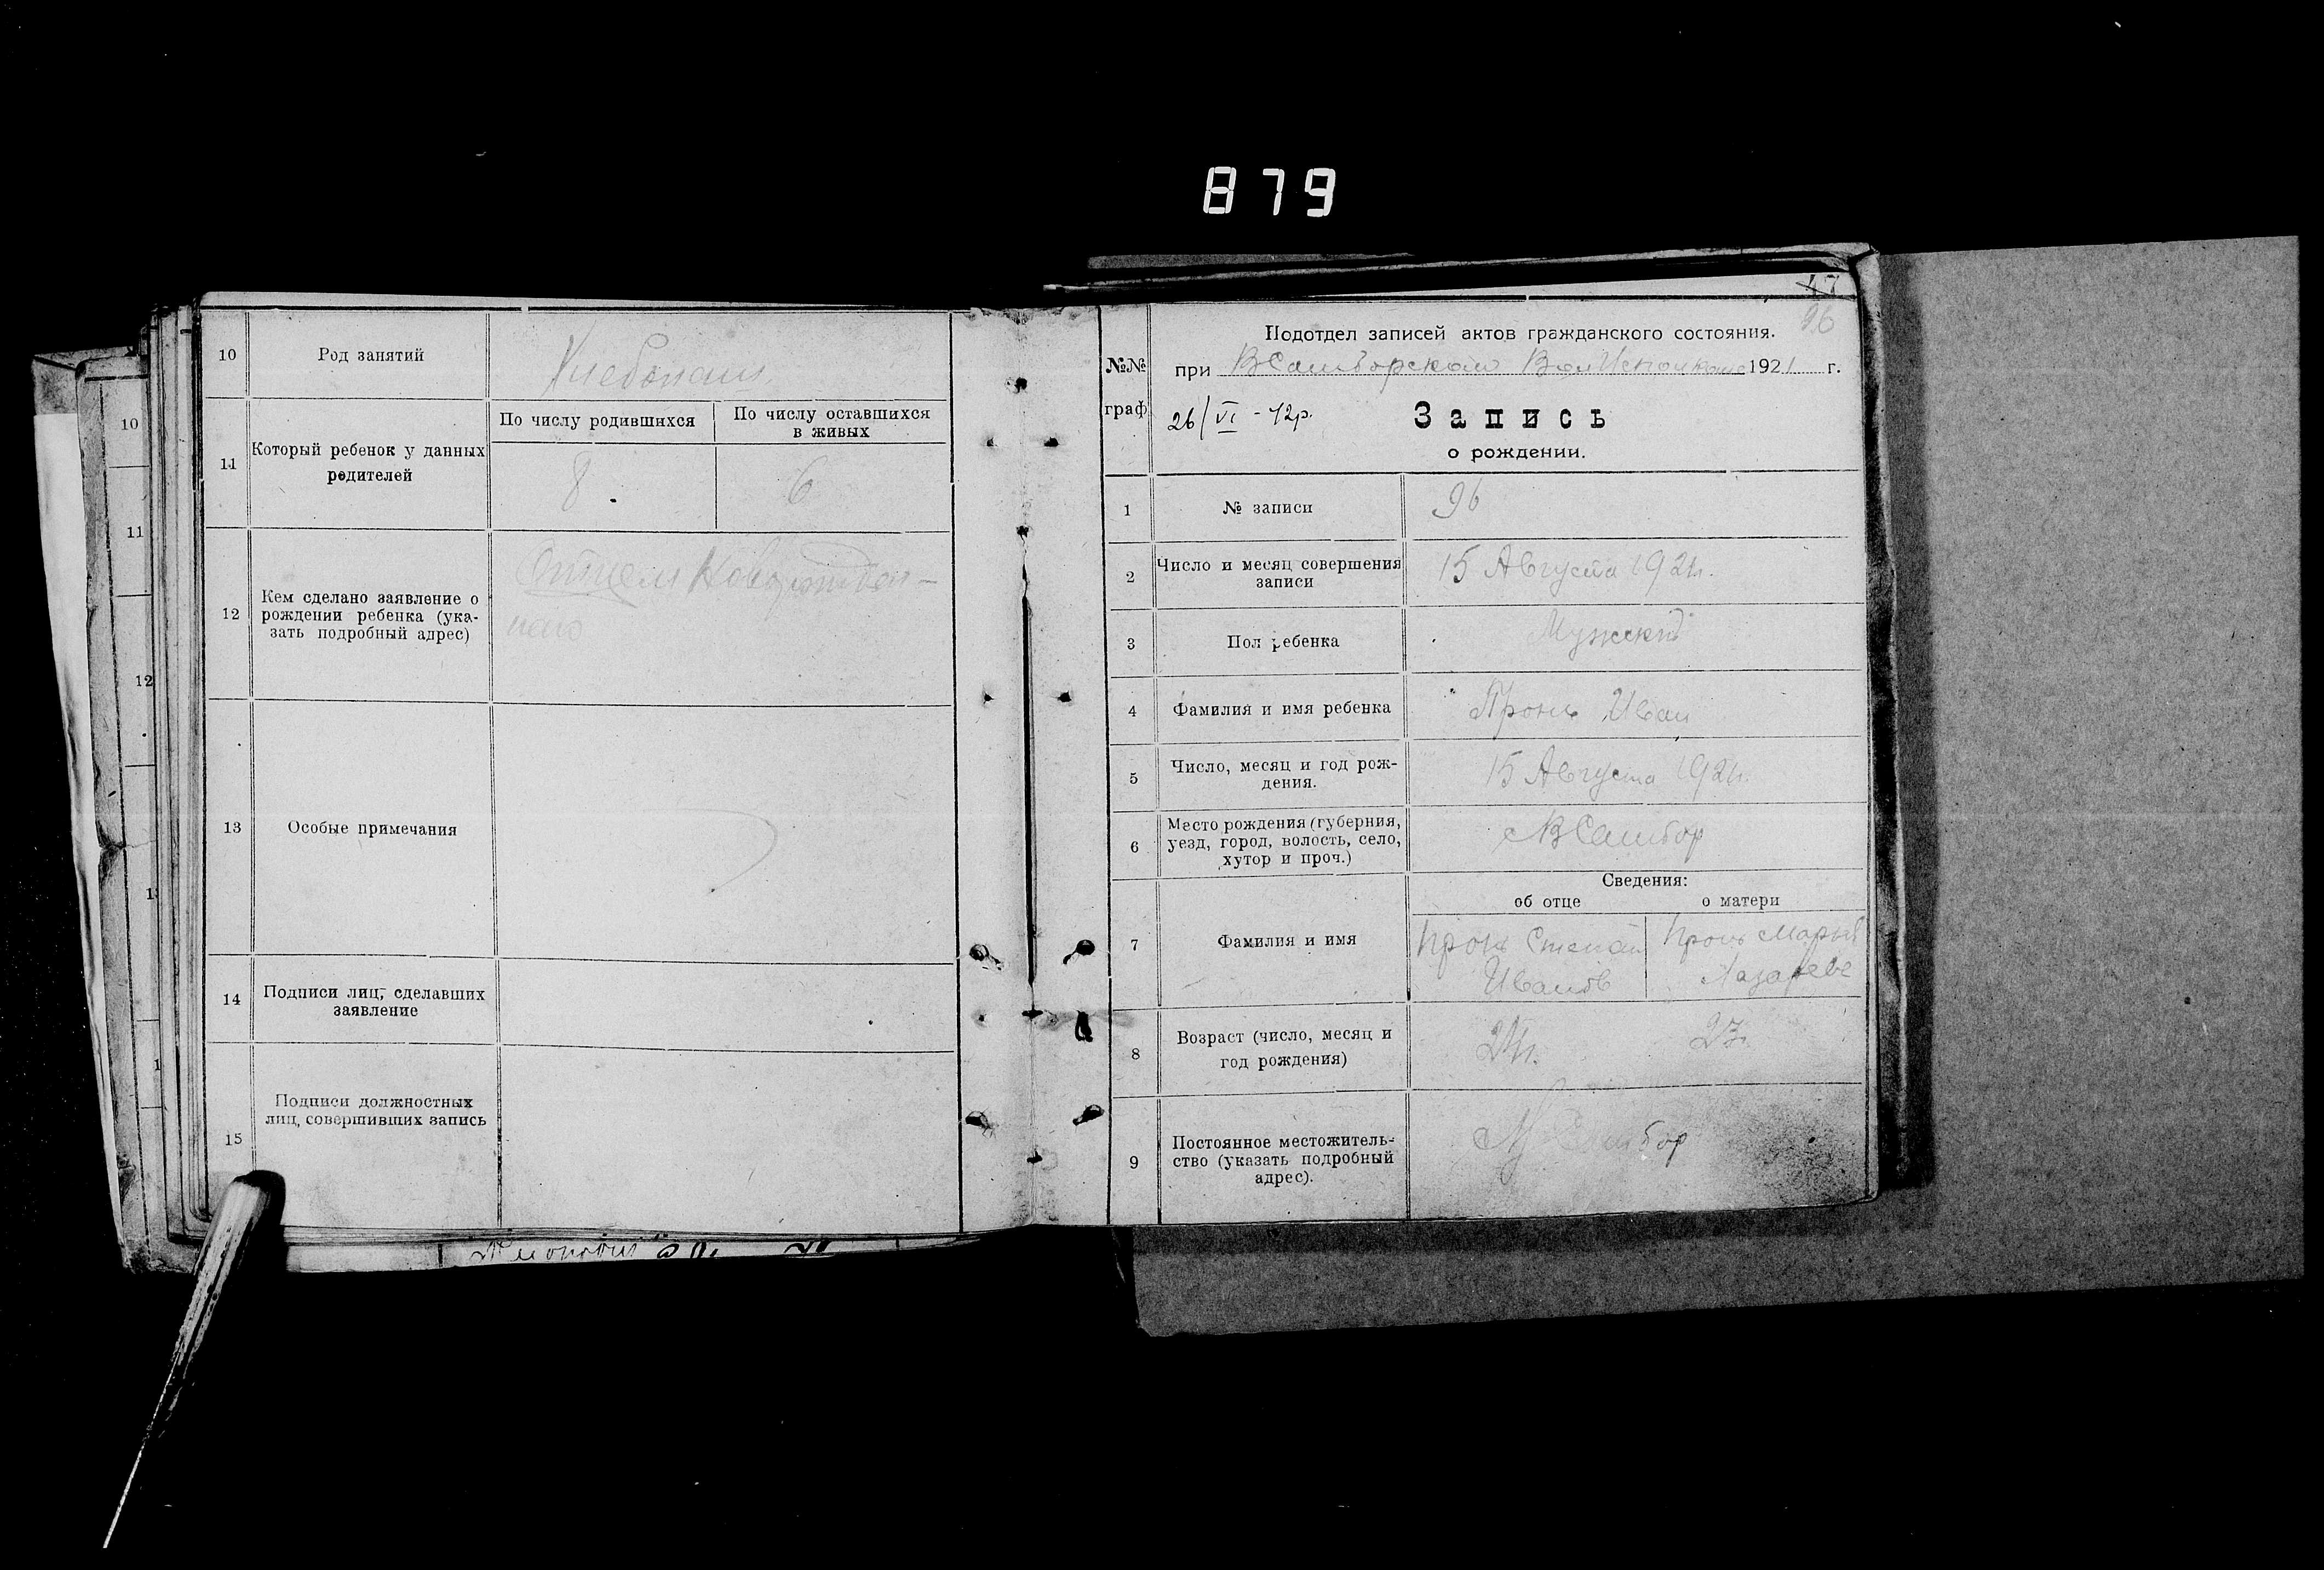 879
10
Род занятий
Хлебопаш.
11
Который ребенок у данных
родителей
По числу родившихся
По числу оставшихся
в живых
8
6
12
Кем сделано заявление о
рождении ребенка (ука-
зать подробный адрес)
Отцем
13
Особые примечания
14
Подписи лиц, сделавших
заявление
15
Подписи должностных
лиц, совершивших запись
10
11
12
47
96
№№
граф
Подотдел записей актов гражданского состояния.
при ВСамборском ВолИсполкоме 1921 г.
26/VI - 42р.
Запись
о рождении.
1
№ записи
96
2
Число и месяц совершения
записи
15 Августа 1921г.
3
Пол ребенка
Мужский
4
Фамилия и имя ребенка
Пронь Иван
5
Число, месяц и год рож-
дения.
15 Августа 1921г.
6
Место рождения (губерния,
уезд, город, волость, село,
хутор и проч.)
ВСамбор
Сведения:
об отце
о матери
7
Фамилия и имя
Пронь Степан
Иванов
Пронь Мария
Лазарева
8
Возраст (число, месяц и
год рождения)
23
9
Постоянное местожитель-
ство (указать подробный
адрес).
Самбор